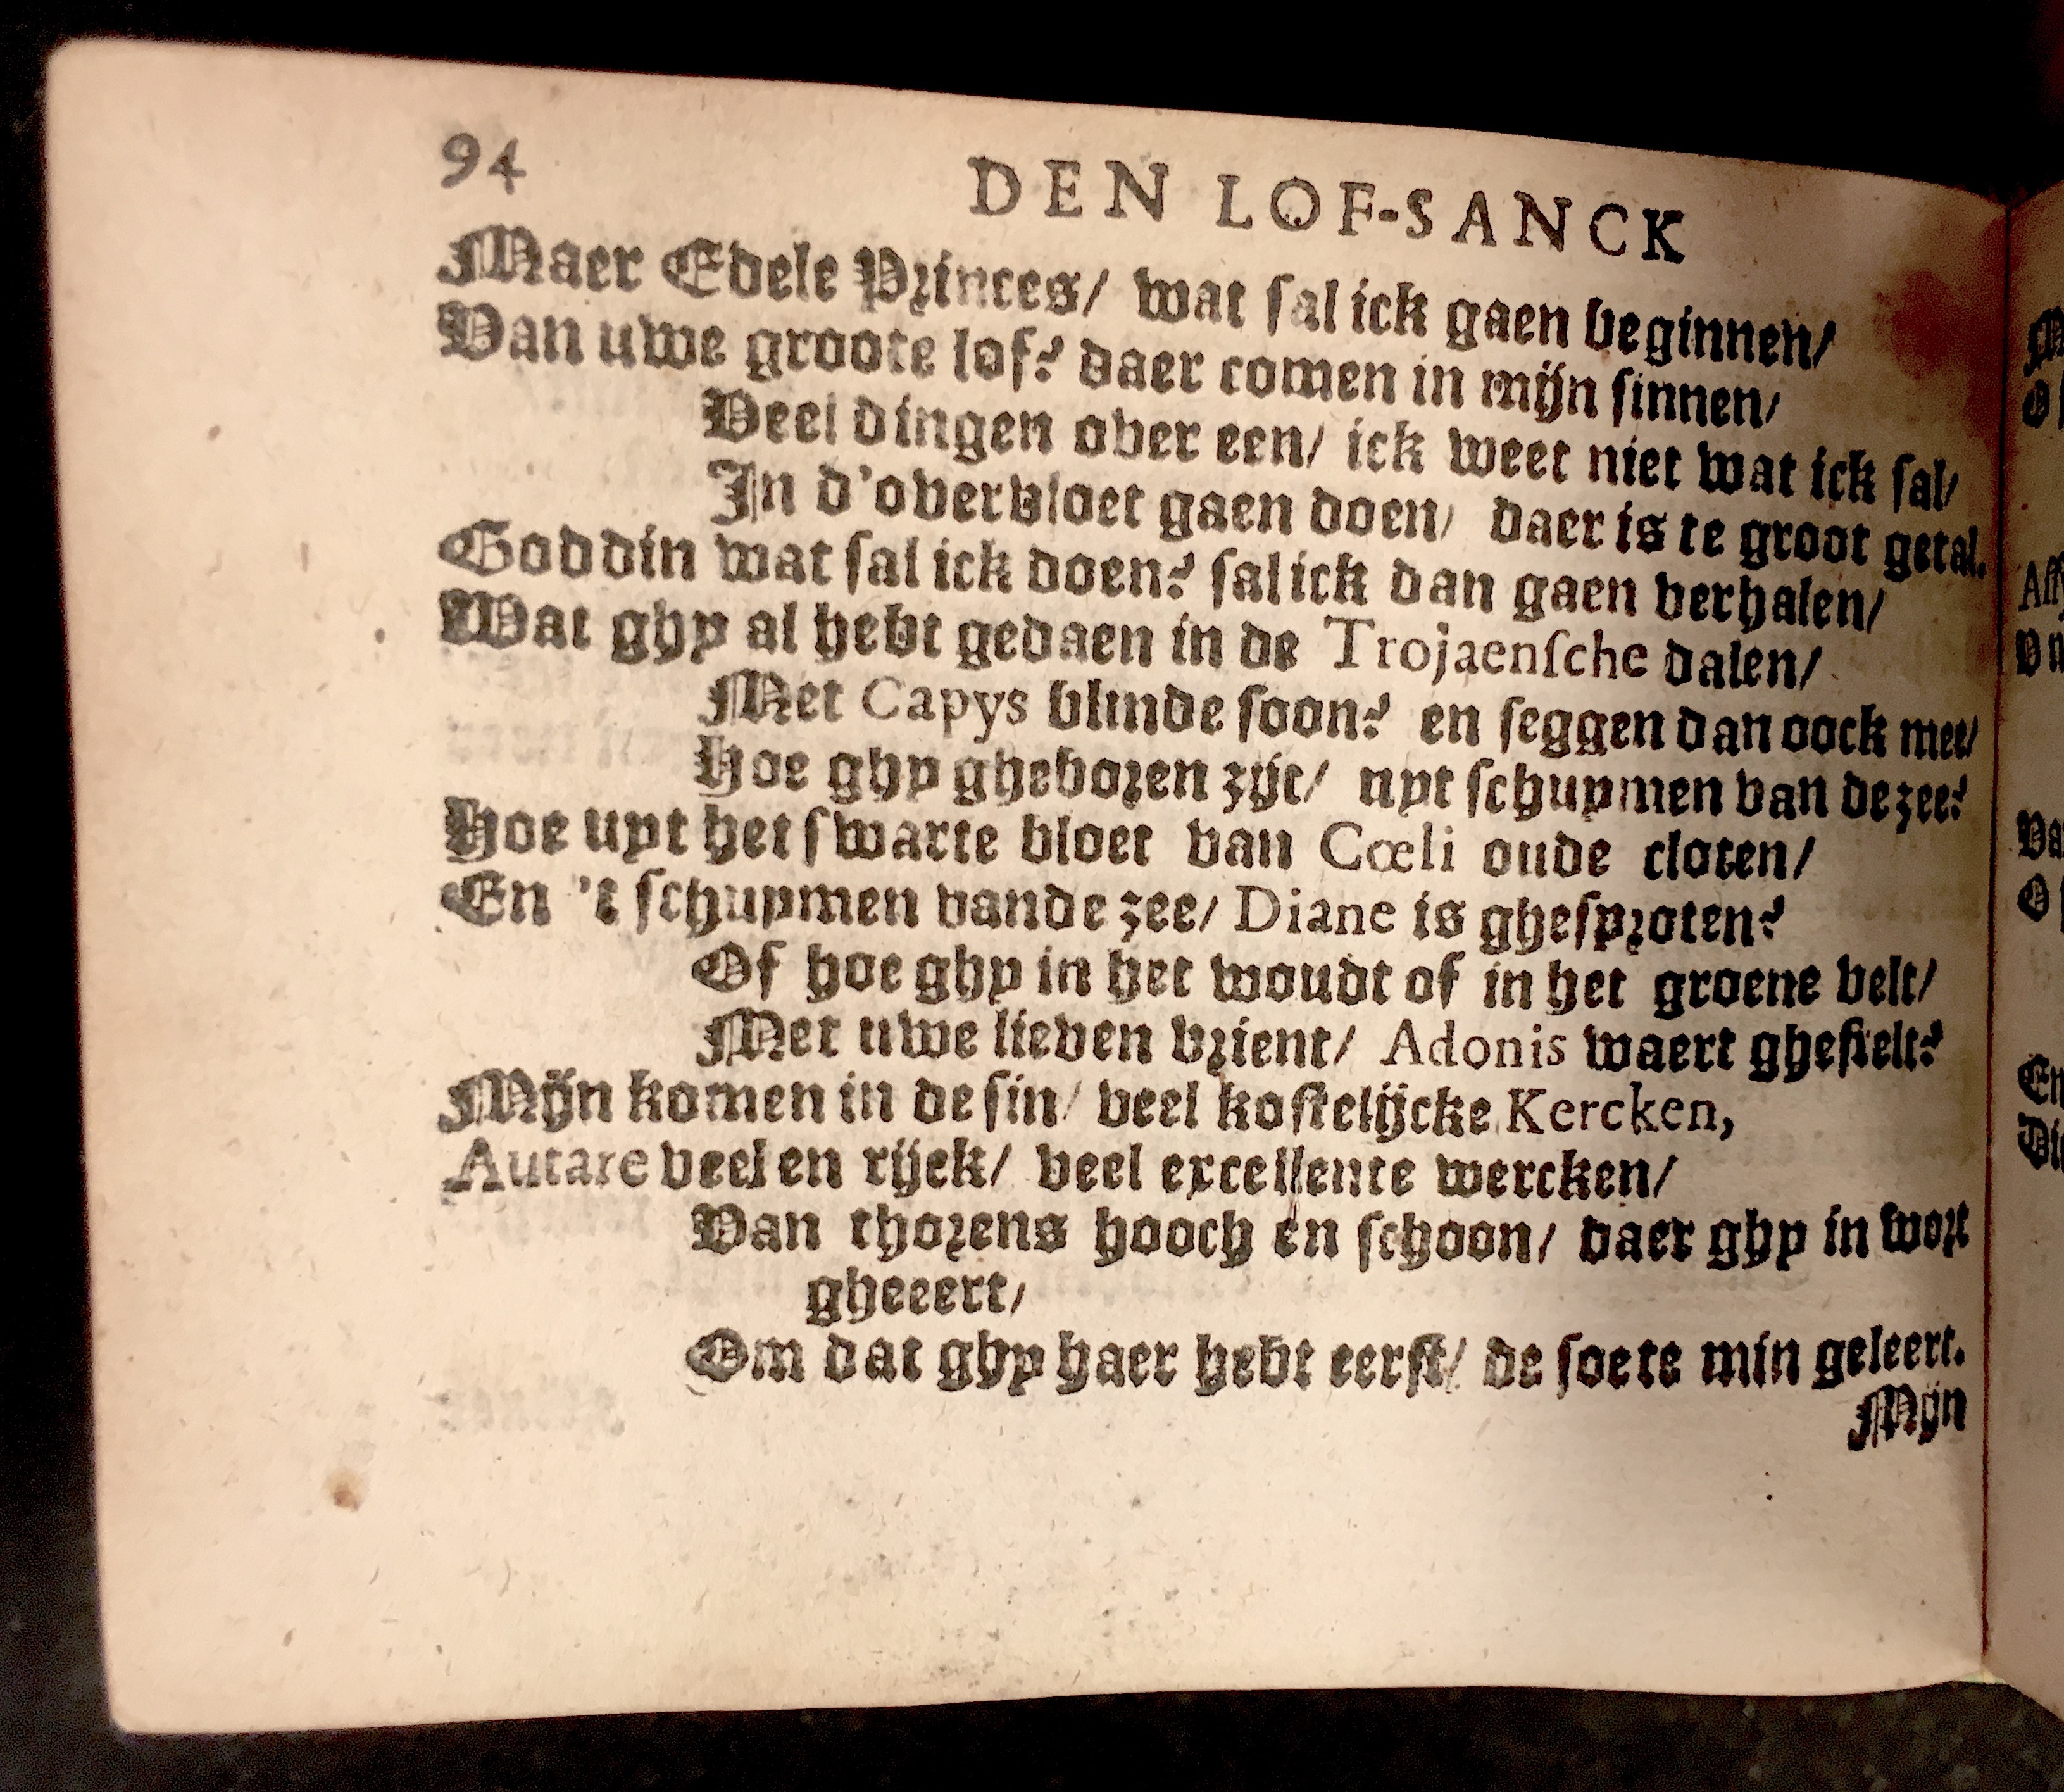 94
DEN LOF-SANCK
Maer Edele Princes/ wat sal ick gaen beginnen/
Van uwe groote lof? daer comen in mijn sinnen/
Veel dingen over een/ ick weet niet wat ick sal/
In d'overvloet gaen doen/ daer is te groot getal.
Goddin wat sal ick doen? sal ick dan gaen verhalen/
Wat ghy al hebt gedaen in de Trojaensche dalen/
Met Capys blinde soon? en seggen dan oock met/
Hoe ghy gheboren zijt/ uyt schuymen van de zee?
Hoe uyt het swarte bloet van Cœli oude cloten/
En 't schuymen vande zee/ Diane is ghesproten?
Of hoe ghy in het woudt of in het groene velt/
Met uwe lieven vrient/ Adonis waert ghestelt?
Mijn komen in de sin/ veel kostelijcke Kercken,
Autare veel en rijck/ veel excellente wercken/
Van thorens hooch en schoon/ daer ghy in wort
gheeert/
Om dat ghy haer hebt eerst/ de soete min geleert.
Mijn